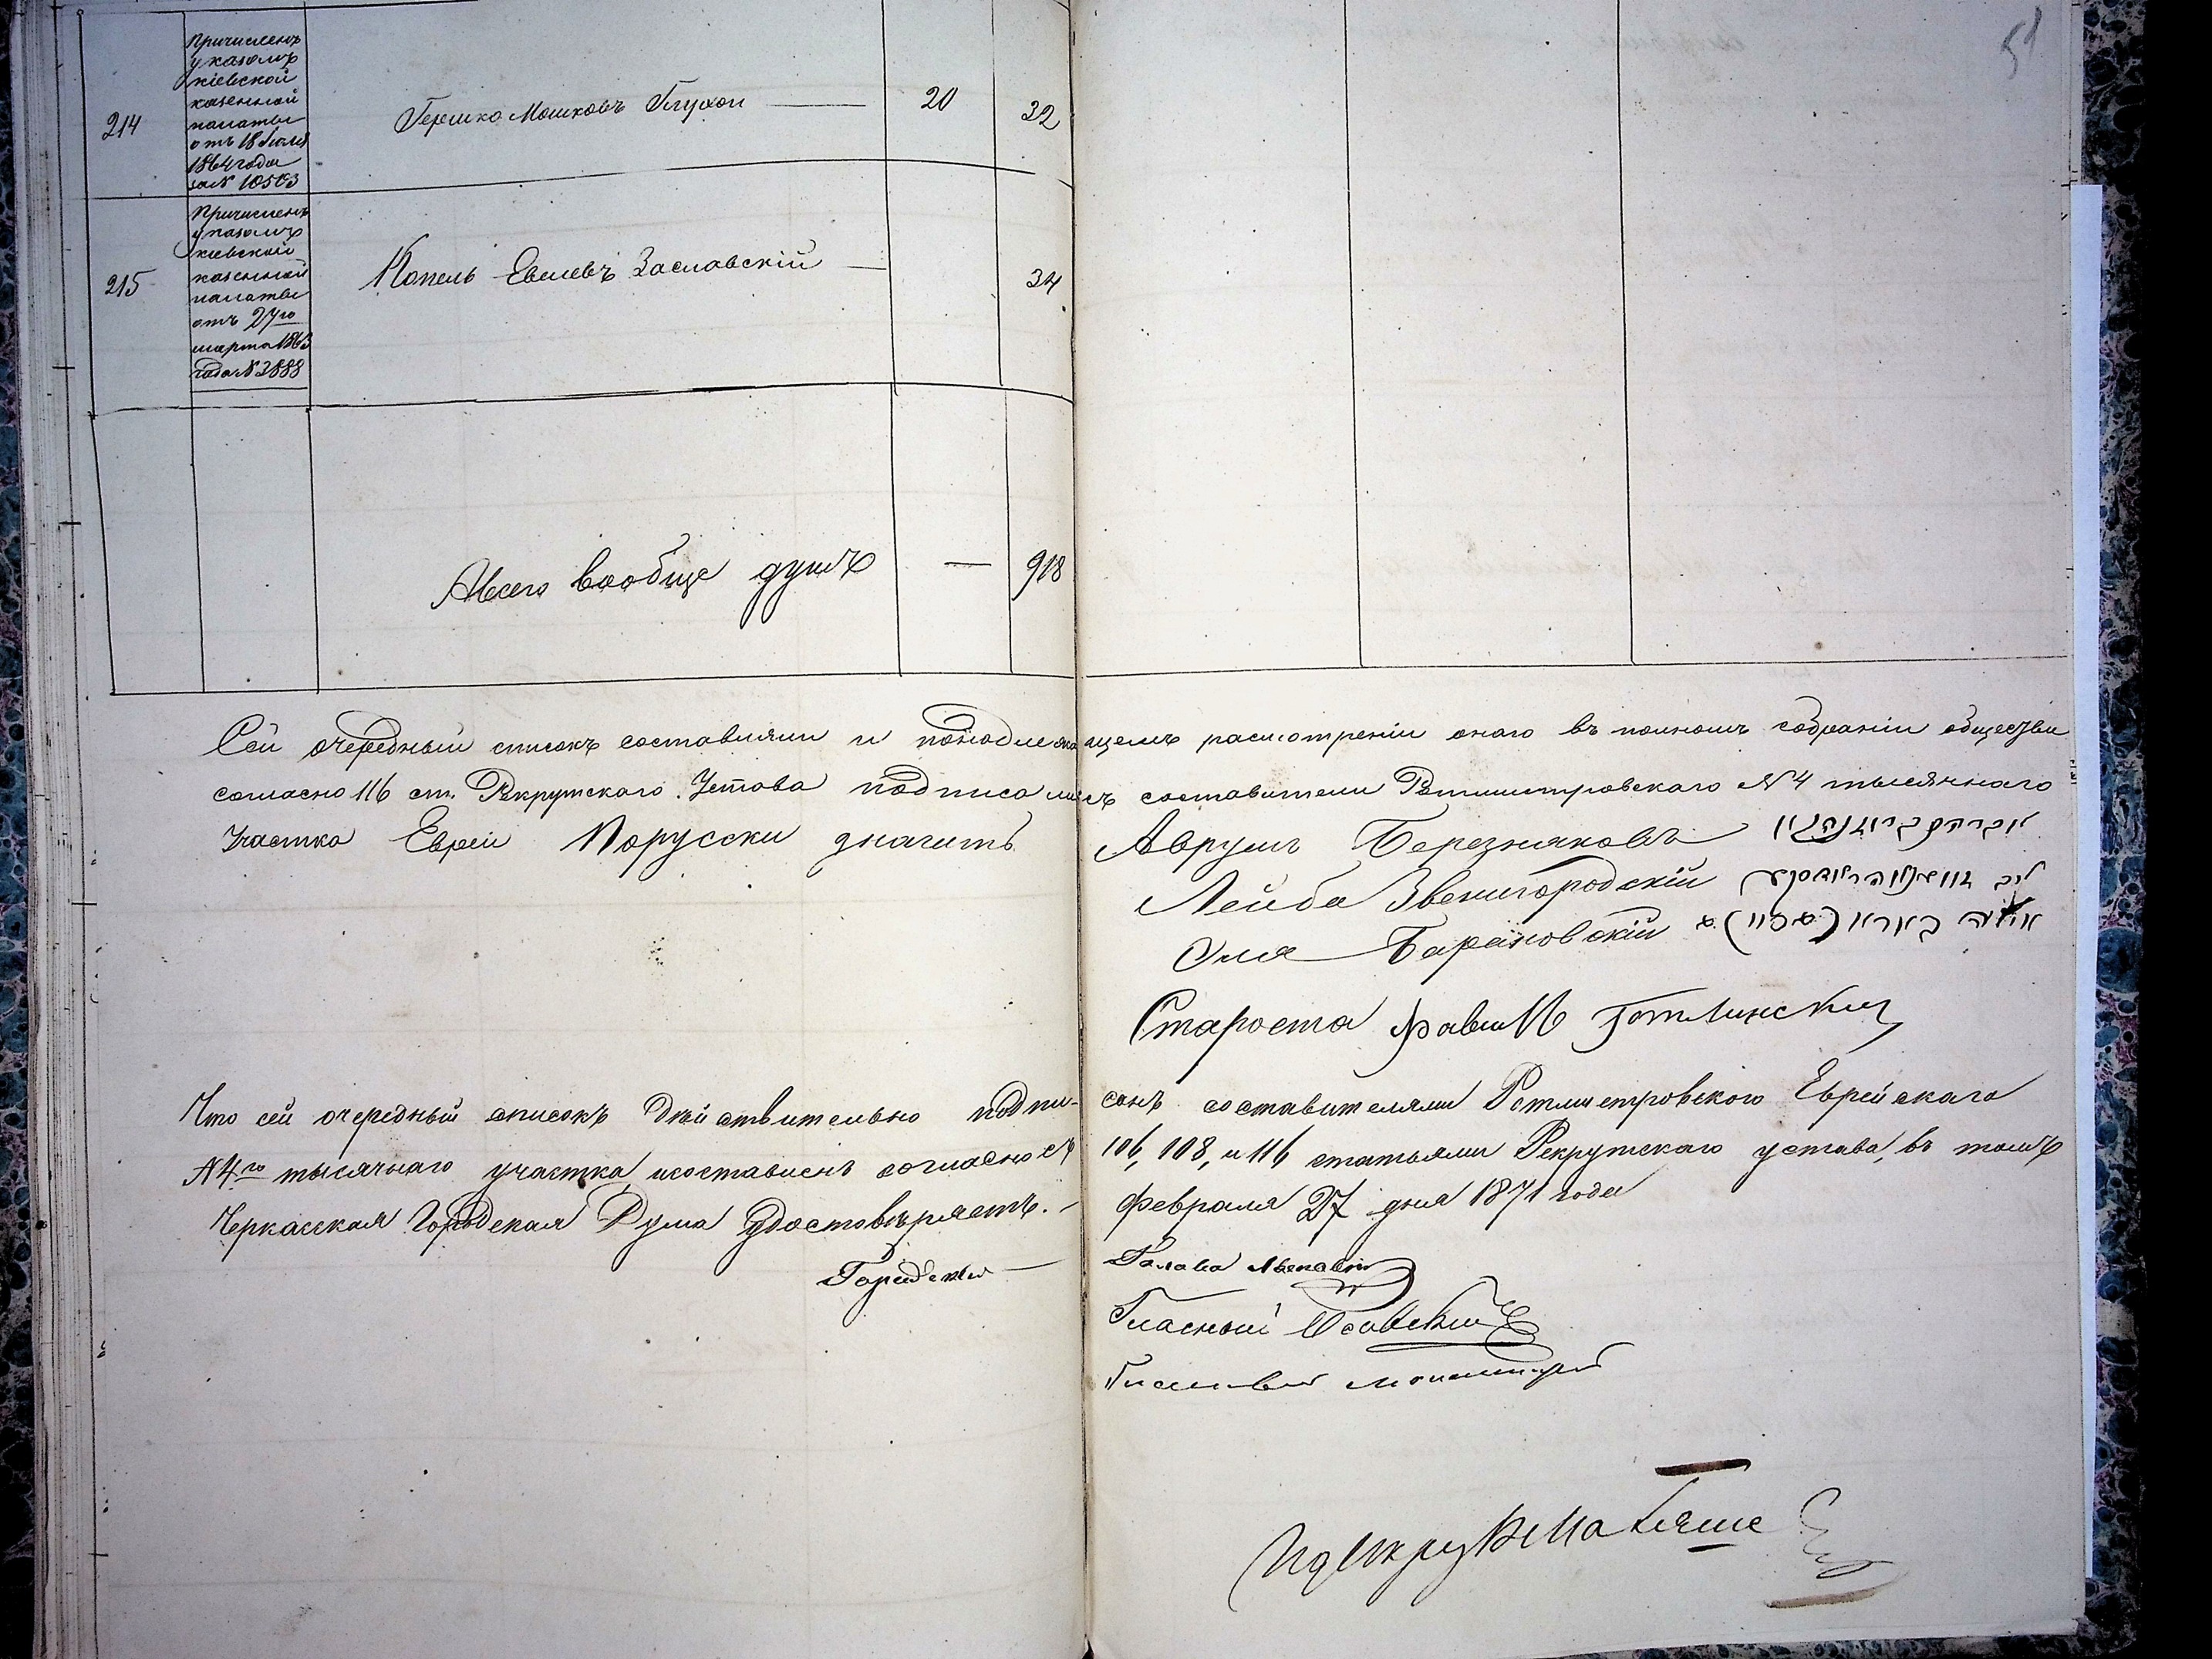 51
214
Причисленъ
указомъ
кіевской
казенной
палаты
отъ 18 Іюля
1864 года
за № 10503
Гершко Мошковъ Глухой
20
32
215
Причисленъ
указомъ
кіевской
казенной
палаты
отъ 27го
марта 1863
года № 3888
Копель Евелевъ Заславскій
34
Авсего вообще душъ — 918
Сей очередный списокъ составляли и поподлежащемъ расмотреніи онаго въ полномъ собраніи общества
согласно 116 ст. Рекрутскаго Устава подписались составители Ротмистровскаго № 4 тысячнаго
Участка Евреи Порусски значитъ Аврумъ Березняковъ
Лейба Звенигородскій
Эля Барановскій
Староста
Что сей очередный списокъ дѣйствительно подписанъ составителями Ротмистровского Еврейскаго
№ 4го тысячнаго участка исоставленъ согласно съ 106, 108, и 116 статьями Рекрутскаго устава, въ томъ
Черкасская Городская Дума удостовѣряетъ. — Февраля 27 дня 1871 года
Городской — Голова
Гласный
Гласный